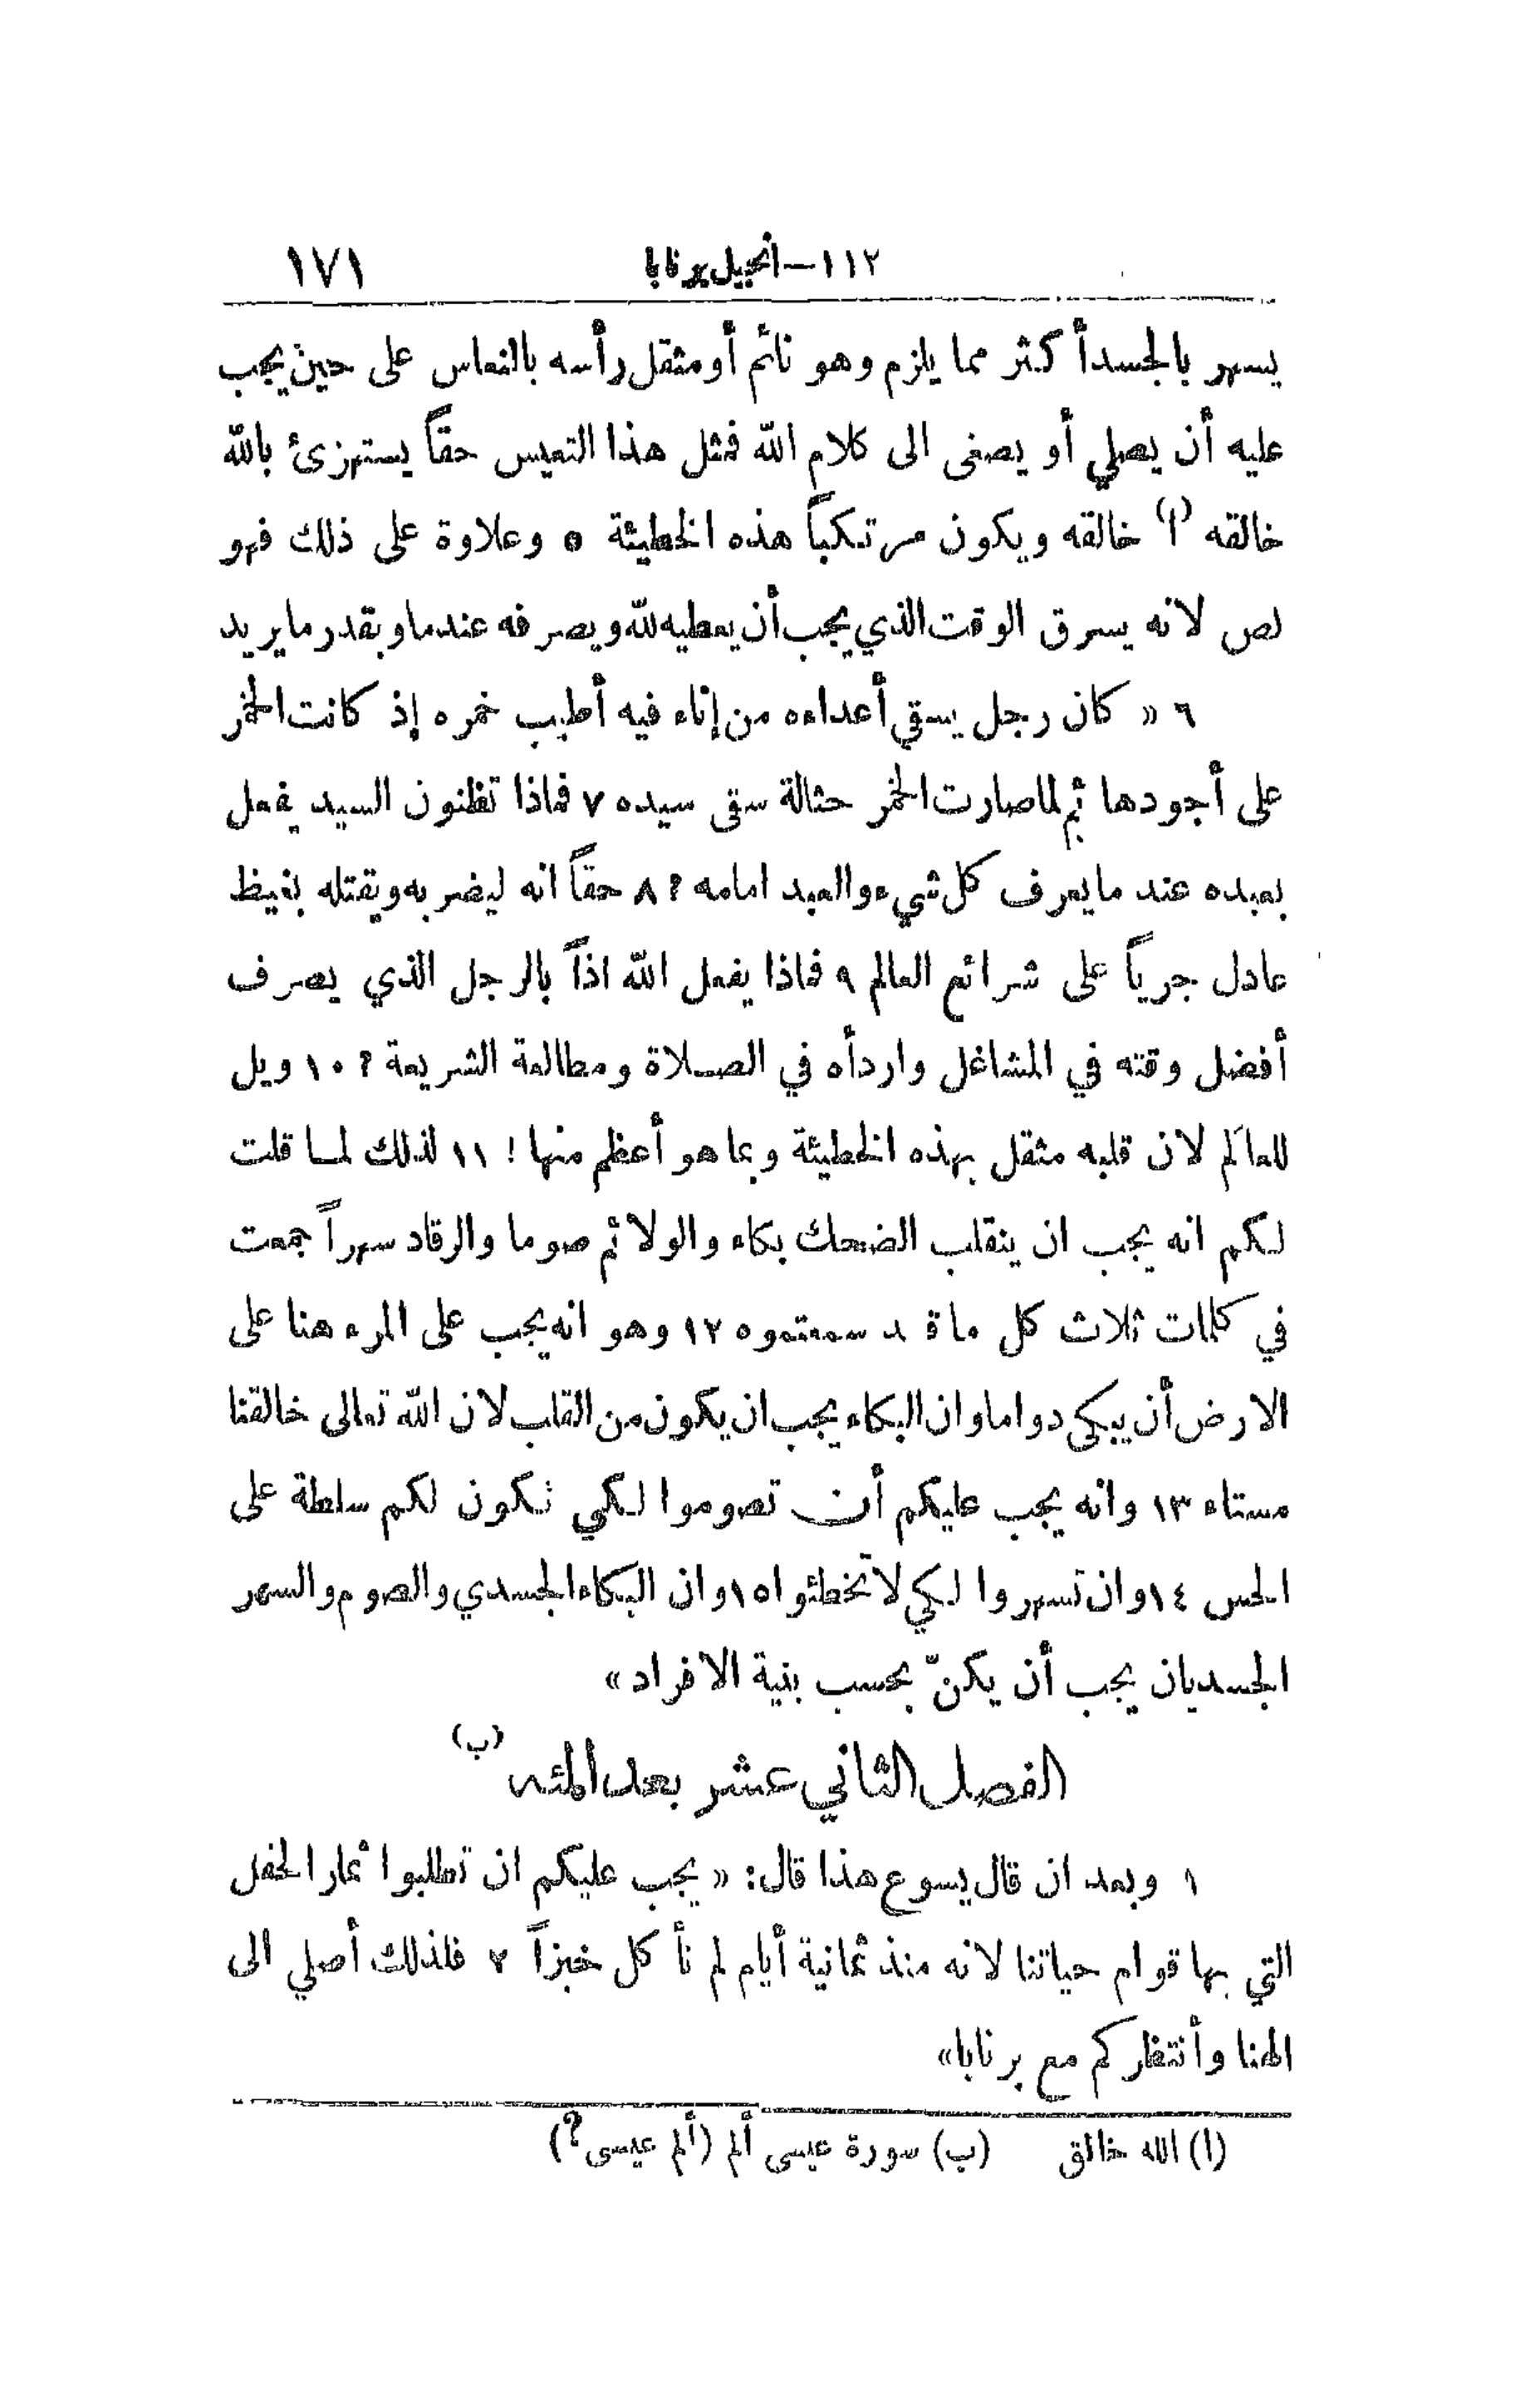 ١١٢ — انجيل برنابا ١٧١
يسهر بالجسد أكثر مما يلزم وهو نائم أو مثقل رأسه بالنعاس على حين يجب
عليه أن يصلي أو يصغى الى كلام الله فمثل هذا التعيس حقاً يستهزئ بالله
خالقه (ا) خالقه ويكون مرتكباً هذه الخطيئة ٥ وعلاوة على ذلك فهو
لص لانه يسرق الوقت الذي يجب أن يعطيه لله ويصرفه عندما وبقدر ما يريد
٦ « كان رجل يسقي أعداءه من إناء فيه أطيب خمره إذ كانت الخمر
على أجودها ثم لما صارت الخمر حثالة سقى سيده ٧ فماذا تظنون السيد يفعل
بعبده عند ما يعرف كل شيء والعبد امامه ? ٨ حقاً انه ليضربه ويقتله بغيظ
عادل جرياً على شرائع العالم ٩ فماذا يفعل الله اذاً بالرجل الذي يصرف
أفضل وقته في المشاغل واردأه في الصلاة ومطالعة الشريعة ? ١٠ ويل
للعالَم لان قلبه مثقل بهذه الخطيئة وبما هو أعظم منها ! ١١ لذلك لما قلت
لكم انه يجب ان ينقلب الضحك بكاء والولائم صوما والرقاد سهراً جمعت
في كلمات ثلاث كل ما قد سمعتموه ١٢ وهو انه يجب على المرء هنا على
الارض أن يبكى دواما وان البكاء يجب ان يكون من القلب لان الله تعالى خالقنا
مستاء ١٣ وانه يجب عليكم أن تصوموا لكي تكون لكم سلطة على
الحس ١٤ وان تسهروا لكي لا تخطئوا ١٥ وان البكاء الجسدي والصوم والسهر
الجسديان يجب أن يكنّ بحسب بنية الافراد »
الفصل الثاني عشر بعد المئه (ب)
١ وبعد ان قال يسوع هذا قال: « يجب عليكم ان تطلبوا ثمار الحقل
التي بها قوام حياتنا لانه منذ ثمانية أيام لم نأكل خبزاً ٢ فلذلك أصلي الى
الهنا وأنتظركم مع برنابا »
(ا) الله خالق (ب) سورة عيسى ألم (ألم عيسى ?)